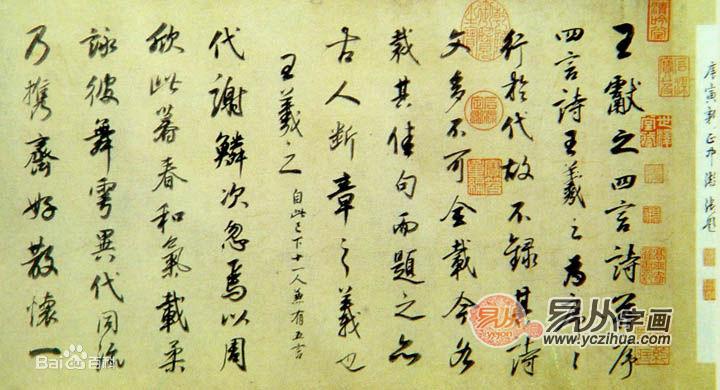 王獻之四言詩并序
四言詩王羲之為序〻
行於代故不錄其詩
文多不可全載今各
裁其佳句而題之亦
古人斷章之義也
王羲之 自此已下十一人並有五言
代謝鱗次忽焉以周
欣此暮春和氣載柔
詠彼舞雩異代同流
乃攜齊好散懷一
庚寅新正
題
易从字画
www.yczihua.com
Bai百科